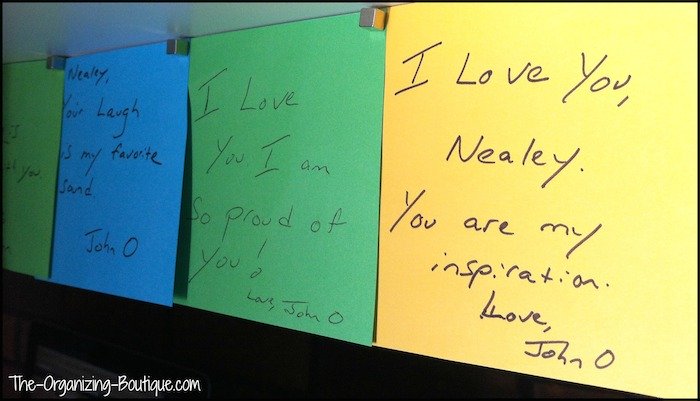 you.
Nealey,
Your Laugh
is my favorite
Sound.
John O
I Love
You. I am
So proud of
You!
Love, John O
I Love You,
Nealey.
You are my
inspiration.
Love,
John O
The-Organizing-Boutique.com